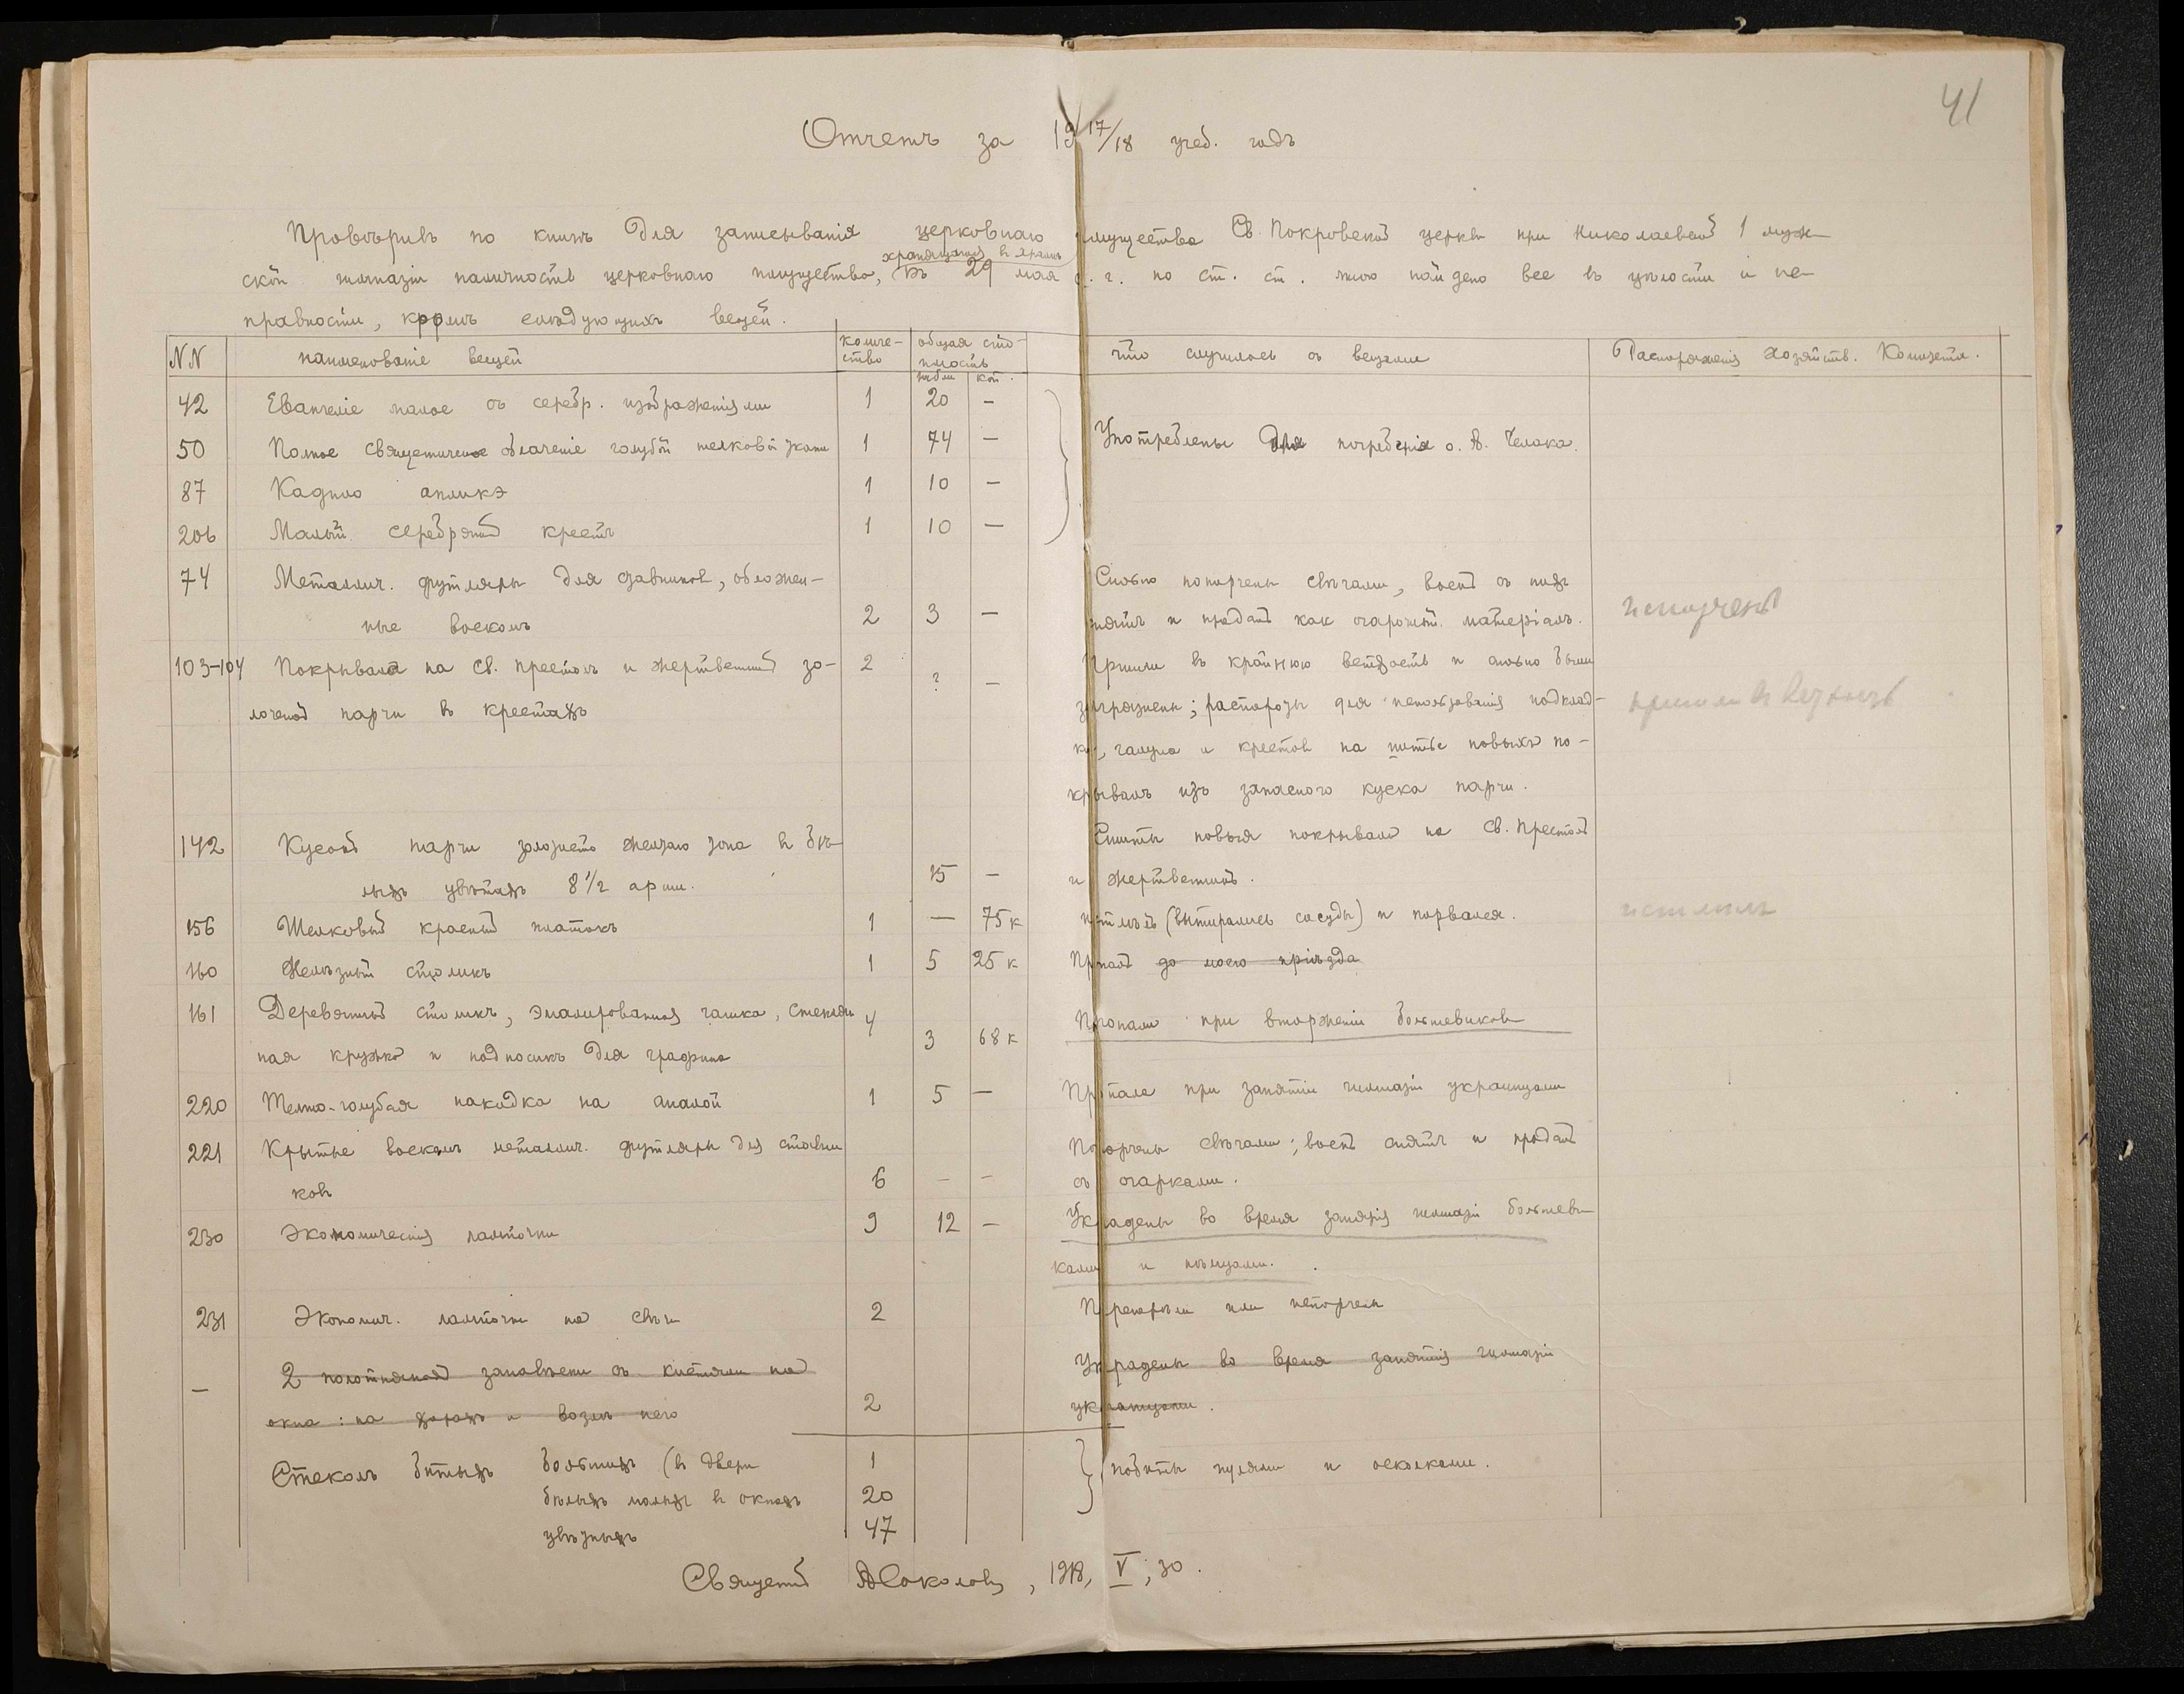 41
Отчетъ за 1917/18 учеб. годъ
Провѣривъ по книгѣ для записыванія церковнаго имущества Св. Покровской церкви при Николаевской 1 муж-
хранящагося въ храмѣ
ской гимназіи наличность церковнаго имущества, 29 мая с. г. по ст. ст. мною найдено все въ цѣлости и ис-
правности, кромѣ слѣдующихъ вещей.
NN наименованіе вещей количе-ство общая сто-имость рубли коп. что случилось съ вещами Распоряженія Хозяйств. Комитета.
42 Евангеліе малое съ серебр. изображеніями 1 20 —
50 Полное священническое облаченіе голубой шелковой ткани 1 74 — Употреблены для погребенія о. А. Челака.
87 Кадило аплике 1 10 —
206 Малый серебряный крестъ 1 10 —
74 Металлич. футляры для ставников, обложен- Сильно попорчены свѣчами, воскъ съ нихъ
ные воскомъ 2 3 — снятъ и проданъ как огарочный матеріалъ.
103-104 Покрывала на Св. престолъ и жертвенникъ зо- 2 ? — Пришли въ крайнюю ветхость и сильно были
лоченой парчи въ крестахъ загрязнены; распороты для использованія подклад-
ки, галуна и крестов на шитье новыхъ по-
крывалъ изъ запасного куска парчи.
142 Кусокъ парчи золотисто желтаго тона въ бѣ- Сшиты новыя покрывала на Св. Престолъ
лыхъ цвѣтахъ 8 1/2 арши. 15 — и жертвенникъ.
156 Шелковый красный платокъ 1 — 75 к истлѣлъ (вытирались сосуды) и порвался. истлѣлъ
160 Желѣзный столикъ 1 5 25 к Пропалъ до моего пріѣзда
161 Деревянный столикъ, эмалированная чашка, стеклян- 4 Пропали при вторженіи большевиков
ная кружка и подносикъ для графина 3 68 к
220 Темно-голубая накидка на аналой 1 5 — Пропала при занятіи гимназіи украинцами
221 Крытые воскомъ металлич. футляры для ставни- Попорчены свѣчами; воскъ снятъ и проданъ
ков 6 – – съ огарками.
230 Экономическія лампочки 9 12 — Украдены во время занятія гимназіи большеви-
ками и нѣмцами.
231 Экономич. лампочки на свѣчи 2 Перегорѣли или испорчены
— 2 полотняной занавѣски съ кистями на Украдены во время занятія гимназіи
окна: на хорахъ и возлѣ него 2 украинцами.
Стеколъ битыхъ большихъ (въ двери 1 побиты пулями и осколками.
бѣлыхъ малыхъ въ окнахъ 20
цвѣтныхъ 47
Священникъ А Соколовъ, 1918, V, 30.